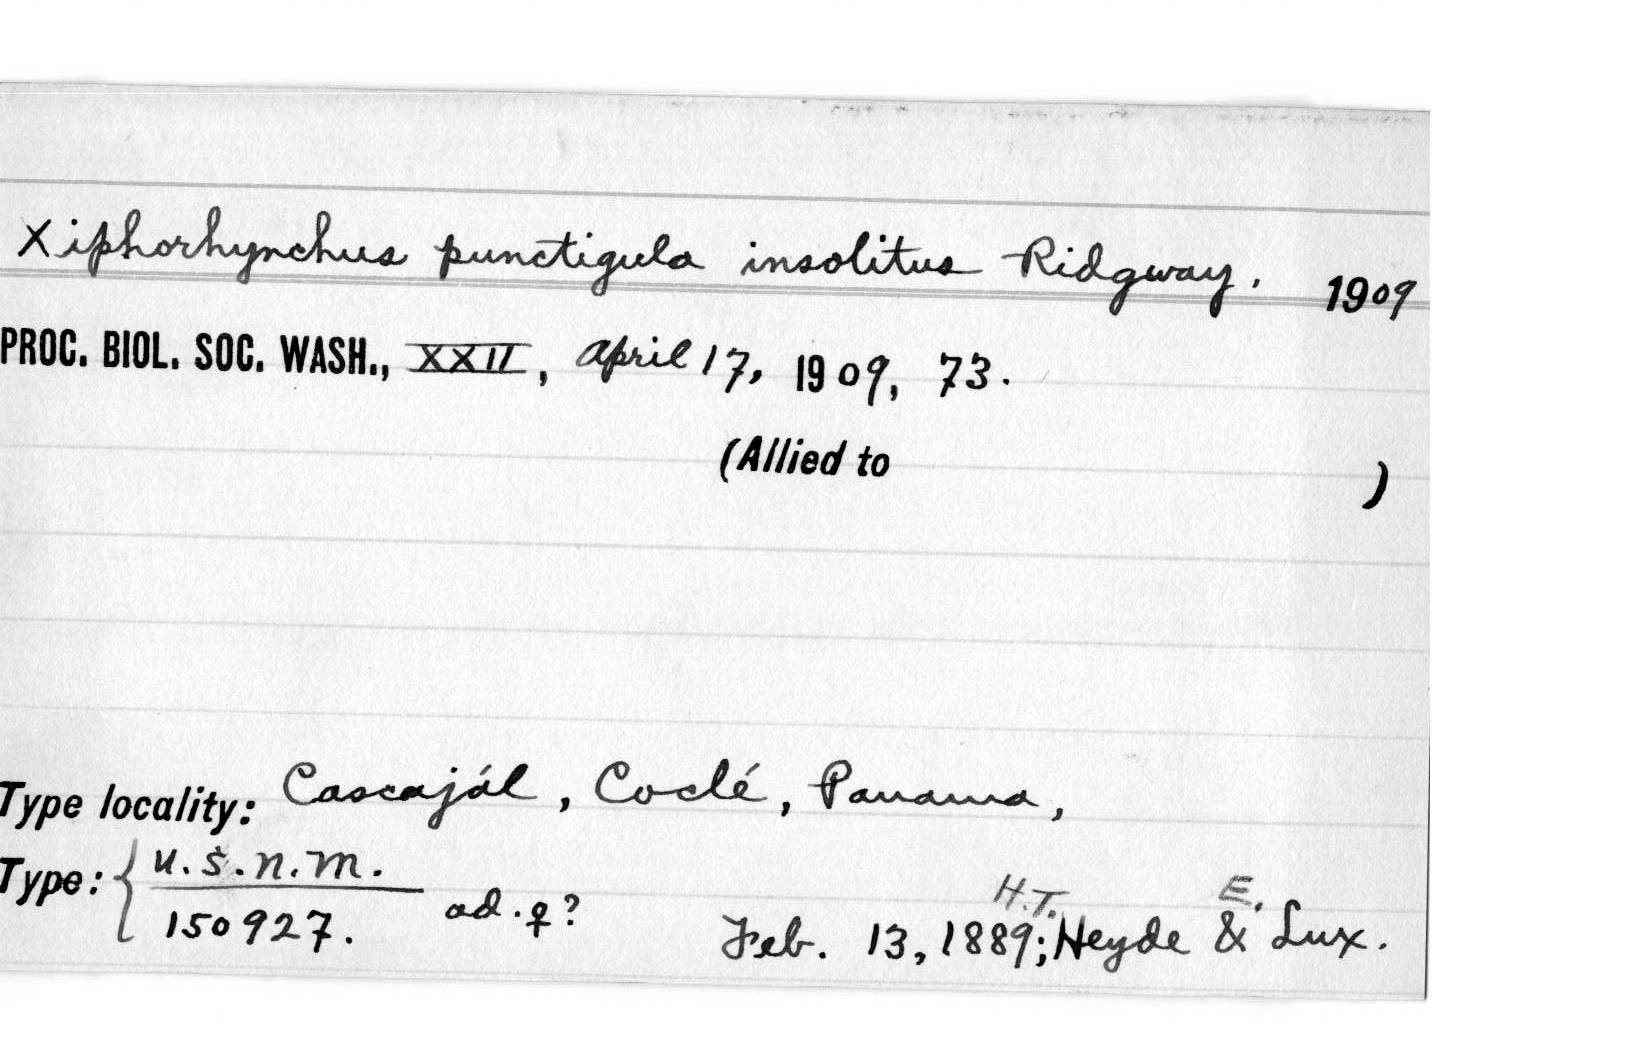 Xiphorhynchus punctigula insolitus Ridgway. 1909
PROC. BIOL. SOC. WASH., XXII, April 17, 1909, 73.
(Allied to )
Type locality: Cascajál, Coclé, Panama,
Type: { U.S.N.M.
150927. ad. ♀? Feb. 13, 1889; H.T. Heyde & E. Lux.